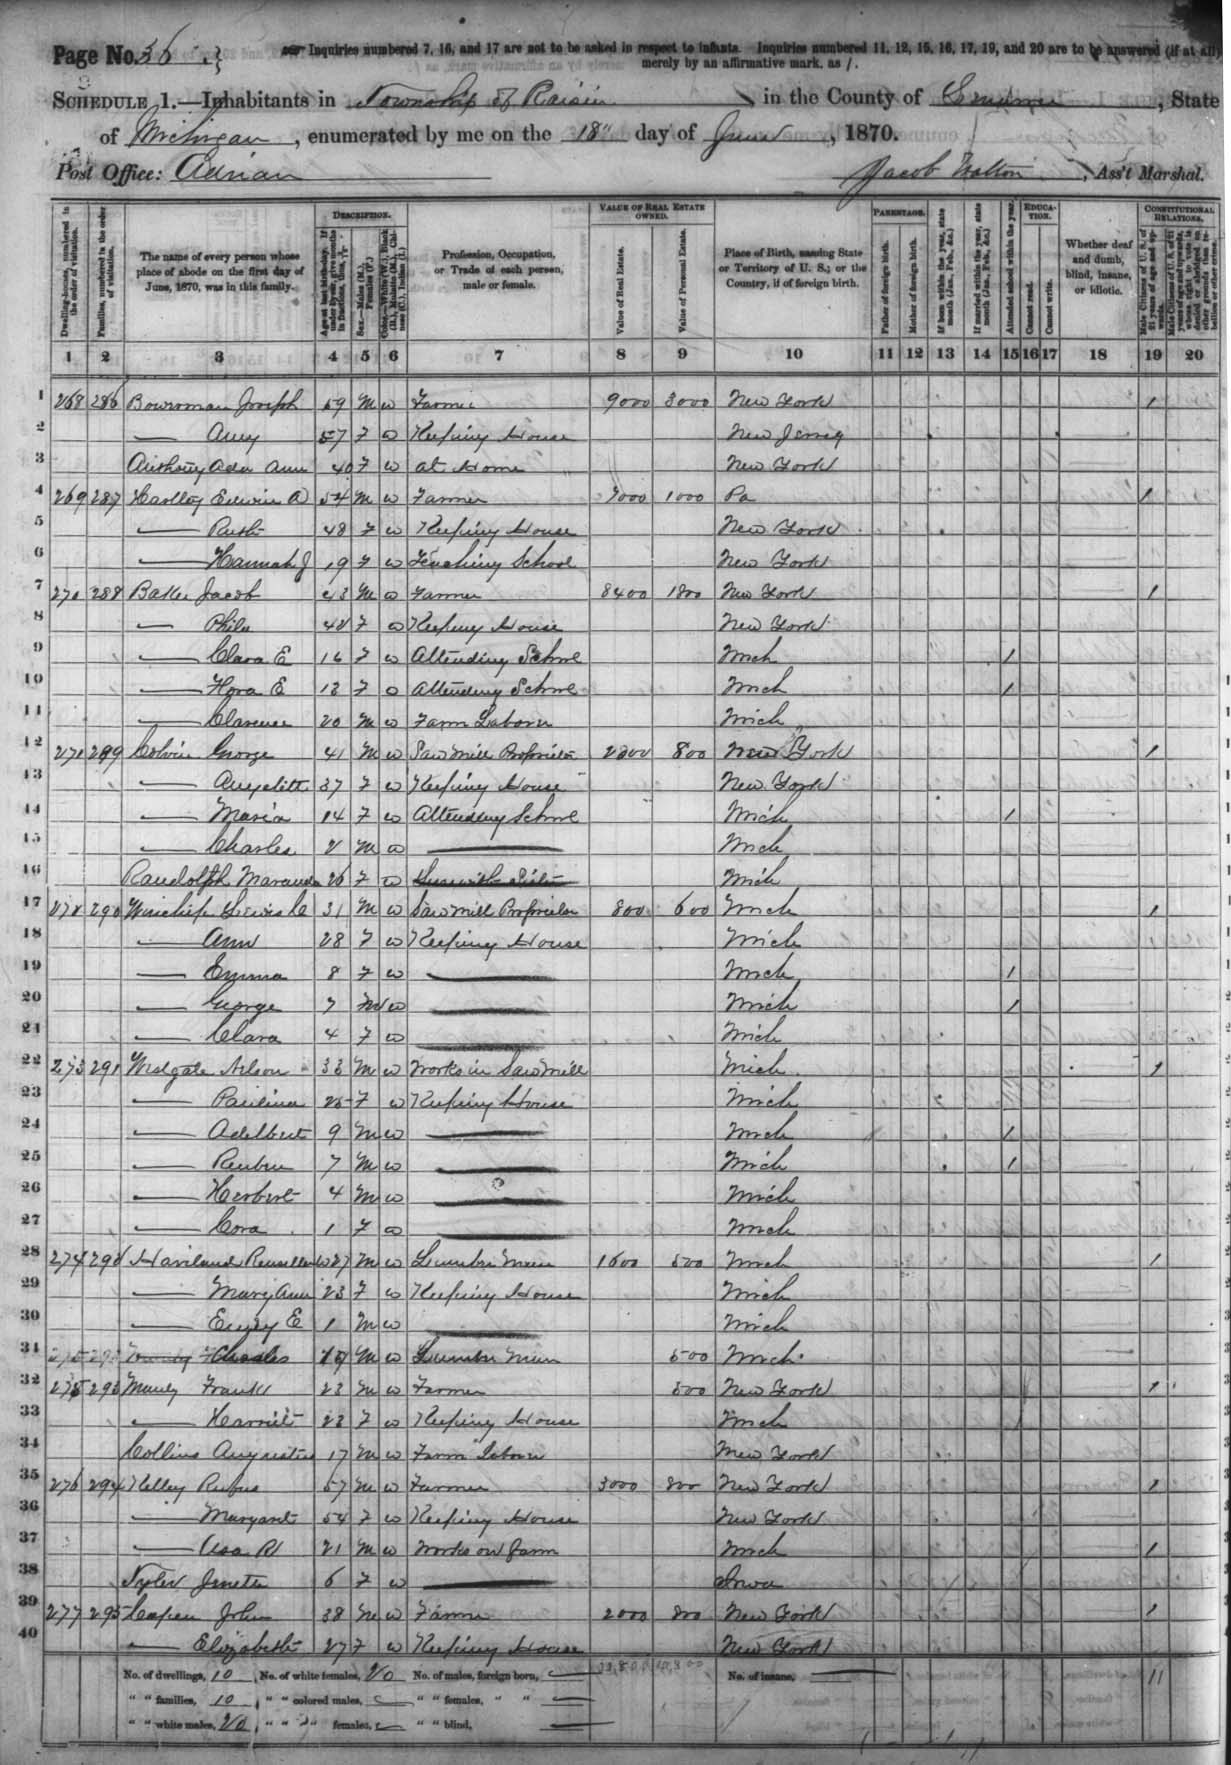 Page No. 36
Inquiries numbered 7, 16, and 17 are not to be asked in respect to infants. Inquiries numbered 11, 12, 15, 16, 17, 19, and 20 are to be answered (if at all)
merely by an affirmative mark, as /.
SCHEDULE 1.—Inhabitants in Township of Raisin, in the County of Lenawee, State
of Michigan, enumerated by me on the 18" day of June, 1870.
Post Office: Adrian Jacob Walton, Ass't Marshal.
Dwelling-houses, numbered in the order of visitation.
Families, numbered in the order of visitation.
The name of every person whose place of abode on the first day of June, 1870, was in this family.
DESCRIPTION.
Profession, Occupation, or Trade of each person, male or female.
VALUE OF REAL ESTATE OWNED.
Value of Real Estate.
Value of Personal Estate.
Place of Birth, naming State or Territory of U. S.; or the Country, if of foreign birth.
PARENTAGE.
Father of foreign birth.
Mother of foreign birth.
If born within the year, state month (Jan., Feb., &c.)
If married within the year, state month (Jan., Feb., &c.)
Attended school within the year.
EDUCATION.
Cannot read.
Cannot write.
Whether deaf and dumb, blind, insane, or idiotic.
CONSTITUTIONAL RELATIONS.
1 2 3 4 5 6 7 8 9 10 11 12 13 14 15 16 17 18 19 20
1 268 286 Bowerman Joseph 59 M W Farmer 9000 3000 New York /
2 — Amy 57 F W Keeping House New Jersey
3 Anthony Ada Ann 40 F W at Home New York
4 269 287 Hartley Edwin A 54 M W Farmer 7000 1000 Pa /
5 — Ruth 48 F W Keeping House New York
6 — Hannah J 19 F W Teaching School New York
7 270 288 Baker Jacob 43 M W Farmer 8400 1800 New York /
8 — Phila 42 F W Keeping House New York
9 — Clara E 16 F W Attending School Mich /
10 — Flora E 13 F W Attending School Mich /
11 — Clarence 20 M W Farm Laborer Mich
12 271 289 Colvin George 41 M W Saw Mill Proprietor 2300 800 New York /
13 — 37 F W Keeping House New York
14 — Maria 14 F W Attending School Mich /
15 — Charles 2 M W — Mich
16 Randolph Maranda 26 F W Mich
17 272 290 Winchip Lewis C 31 M W Saw Mill Proprietor 800 600 Mich /
18 — Ann 28 F W Keeping House Mich
19 — Emma 8 F W — Mich /
20 — George 7 M W — Mich /
21 — Clara 4 F W — Mich
22 273 291 Westgate Nelson 33 M W Works in Saw Mill Mich /
23 — Paulina 25 F W Keeping House Mich
24 — Adelbert 9 M W — Mich /
25 — Reuben 7 M W — Mich /
26 — Herbert 4 M W — Mich
27 — Cora 1 F W — Mich
28 274 292 Haviland 27 M W Lumber Man 1600 500 Mich /
29 — Mary Ann 23 F W Keeping House Mich
30 — Emery E 1 M W — Mich
31 Charles 19 M W Lumber Man 500 Mich
32 275 293 Frank 23 M W Farmer 500 New York /
33 — Harriet 23 F W Keeping House Mich
34 Collins Augustus 17 M W Farm Laborer New York
35 276 294 Kelley Rufus 57 M W Farmer 3000 800 New York /
36 — Margaret 54 F W Keeping House New York
37 — Asa R 21 M W Works on farm Mich /
38 6 F W — Iowa
39 277 295 Capen John 38 M W Farmer 2000 800 New York /
40 — Elizabeth 27 F W Keeping House New York
No. of dwellings, 10 No. of white females, 20 No. of males, foreign born, — No. of insane, — 11
" " families, 10 " " colored males, — " " females, " " —
" " white males, 20 " " " females, — " " blind, —